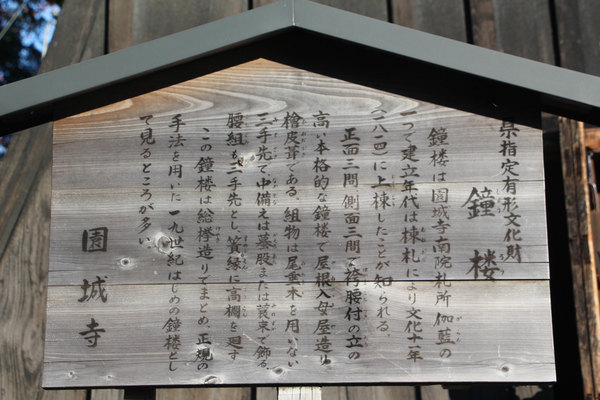 県指定有形文化財
鐘楼
鐘楼は園城寺南院札所伽藍の
一つで建立年代は棟札により文化十一年
(一八一四)に上棟したことが知られる。
正面三間、側面三間で袴腰付の立の
高い本格的な鐘楼で屋根入母屋造り
檜皮葺である。組物は尾垂木を用いない
三手先で、中備えは蟇股または蓑束で飾る。
腰組も三手先とし、簀縁に高欄を廻す
この鐘楼は総欅造りでまとめ、正規の
手法を用いた一九世紀はじめの鐘楼とし
て見るところが多い。
園城寺